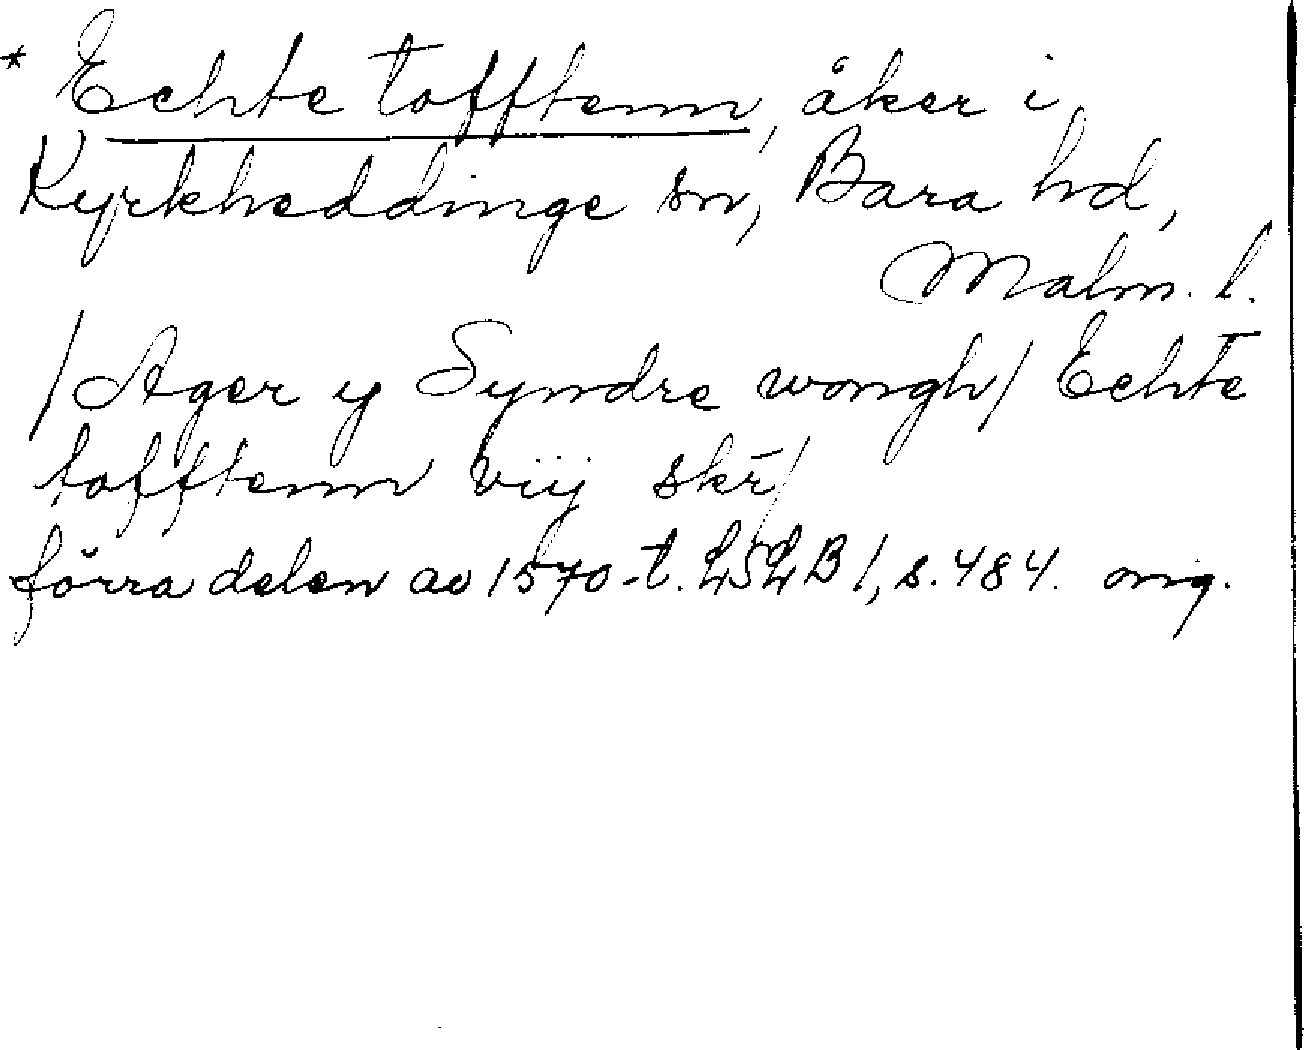 * Echte tofftenn, åker i
Kyrkheddinge sn, Bara hd,
Malm. l.
/Ager y Syndre wongh/ Echte
tofftenn viij skr̄/
förra delen av 1570-t. LSLB 1, s. 484. orig.